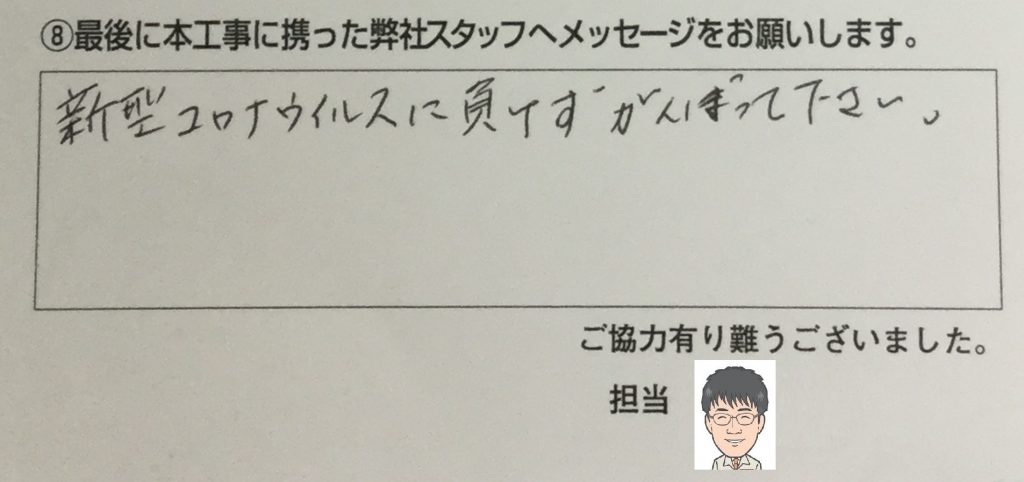 ⑧最後に本工事に携った弊社スタッフへメッセージをお願いします。
新型コロナウイルスに負けずがんばって下さい。
ご協力有り難うございました。
担当